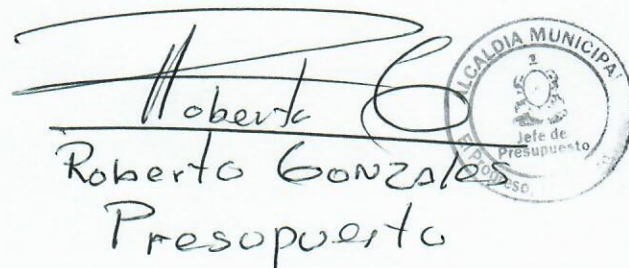 Roberto G
Roberto Gonzales
Presupuesto
ALCALDIA MUNICIPAL
Jefe de
Presupuesto
El Progreso,